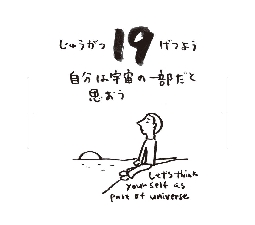 じゅうがつ 19 げつよう
自分は宇宙の一部だと
思おう
Let's think
yourself as
part of universe